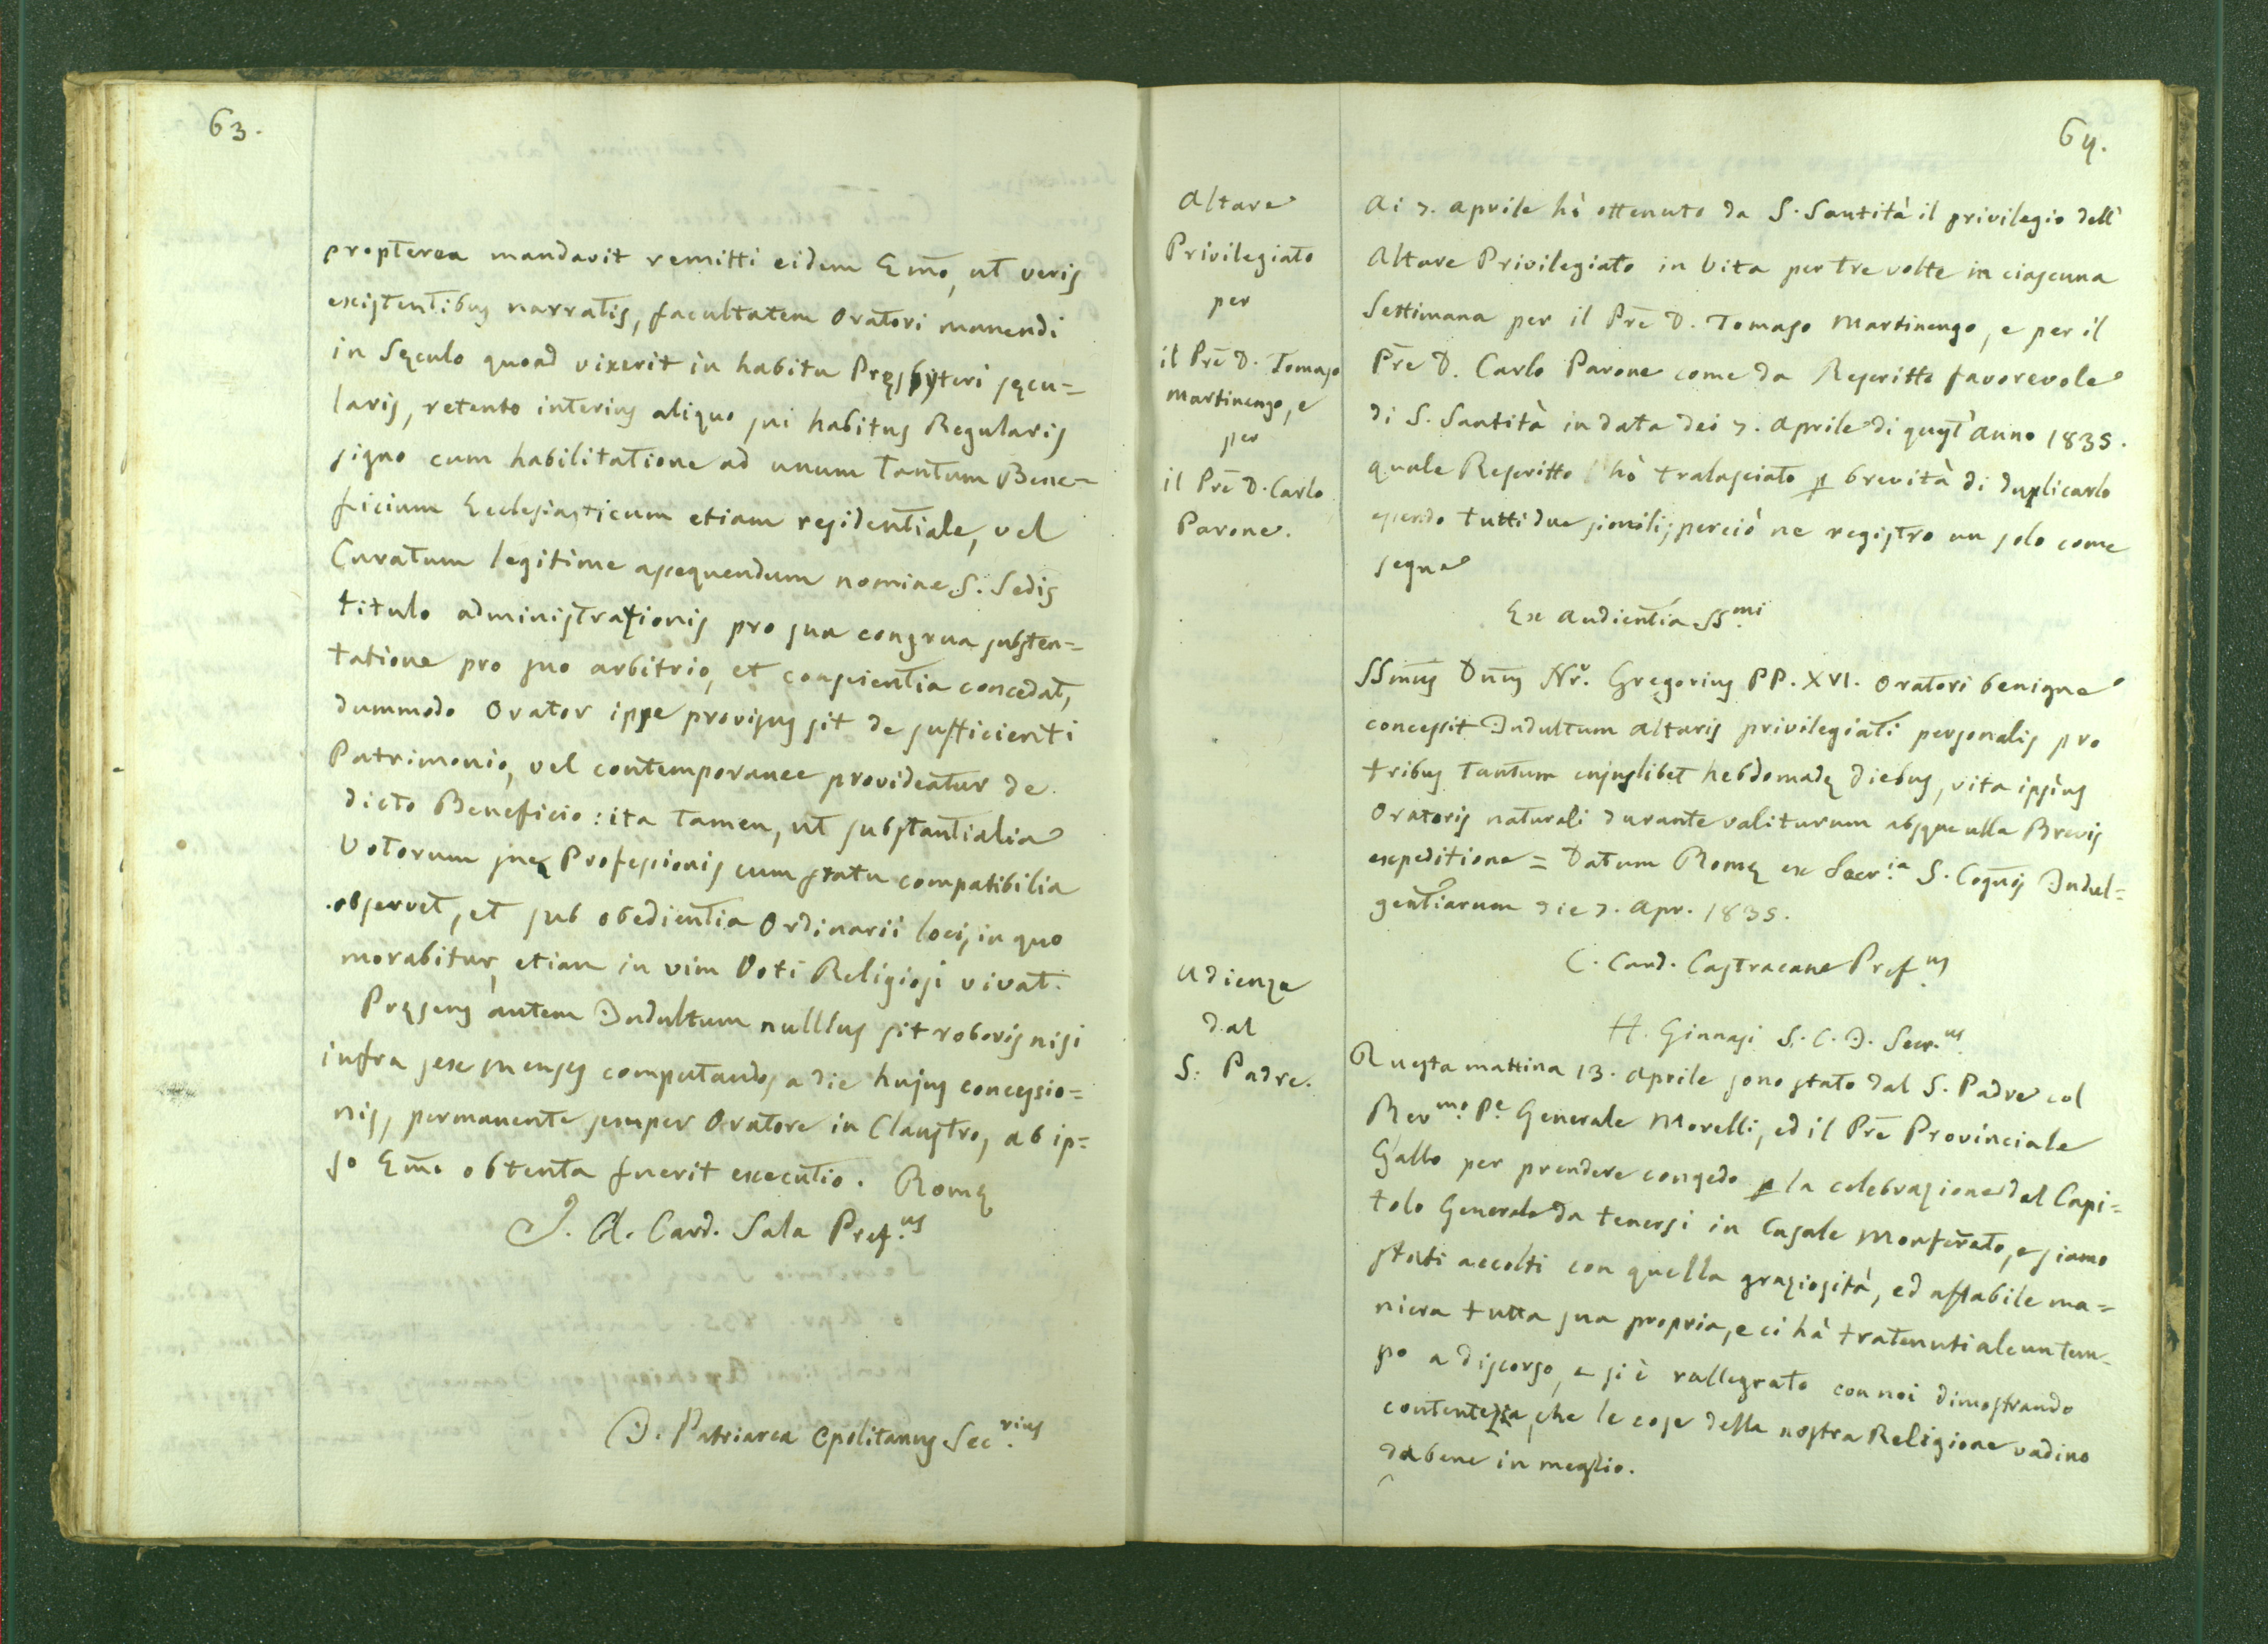 63.
propterea mandavit remitti eidem Em̃o, ut veris
existentibus narratis, facultatem Oratori manendi
in Sęculo quoad vixerit in habitu Pręsbyteri sęcu=
laris, retento interius aliquo sui habitus Regularis
signo cum habilitatione ad unum tantum Bene=
ficium Ecclesiasticum etiam residentiale, vel
Curatum legitime assequendum nomine S. Sedis
titulo administrazionis pro sua congrua substen=
tatione pro suo arbitrio, et conscientia concedat,
dummodo Orator ipse provisus sit de sufficienti
Patrimonio, vel contemporanee provideatur de
dicto Beneficio: ita tamen, ut substantialia
Votorum suę Professionis cum statu compatibilia
observet, et sub obedientia Ordinarii loci, in quo
morabitur, etiam in vim Voti Religiosi vivat.
Pręsens autem Indultum nulllus sit roboris nisi
infra sex menses computandos a die hujus concessio=
nis, permanente semper Oratore in Claustro, ab ip=
so Em̃o obtenta fuerit executio. Romę
J. A. Card. Sala Pref.us
J. Patriarca Cpolitanus Sec.rius
64.
Altare
Privilegiato
per
il Prẽ D. Tomaso
Martinengo, e
per
il Prẽ D. Carlo
Parone.
Ai 7. Aprile hò ottenuto da S. Santità il privilegio dell'
Altare Privilegiato in Vita per tre volte in ciascuna
Settimana per il Prẽ D. Tomaso Martinengo, e per il
Prẽ D. Carlo Parone come da Rescritto favorevole
di S. Santità in data dei 7. Aprile di quest'anno 1835.
quale Rescritto hò tralasciato p brevità di duplicarlo
essendo tutti due simili; perciò ne registro un solo come
segue
Ex Audientia SS.mi
SSm̃us Dñus Nr̃. Gregorius PP. XVI. Oratori benigne
concessit Indultum Altaris privilegiati personalis pro
tribus tantum cujuslibet hebdomadę diebus, vita ipsius
Oratoris naturali durante valiturum absque ulla Brevis
expeditione = Datum Romę ex Secr.ia S. Cogñis Indul=
gentiarum die 7. Apr. 1835.
C. Card. Castracane Pref.us
H. Ginnasi S. C. I. Secr.us
Udienza
dal
S: Padre.
Questa mattina 13. Aprile sono stato dal S. Padre col
Rev.mo P.e Generale Morelli, ed il Prẽ Provinciale
Gallo per prendere congedo p la celebrazione del Capi=
tolo Generale da tenersi in Casale Monferrato, e siamo
stati accolti con quella graziosità, ed affabile ma=
niera tutta sua propria, e ci hà tratenuti alcun tem=
po a discorso, e si è rallegrato con noi dimostrando
contentezza, che le cose della nostra Religione vadino
da bene in meglio.